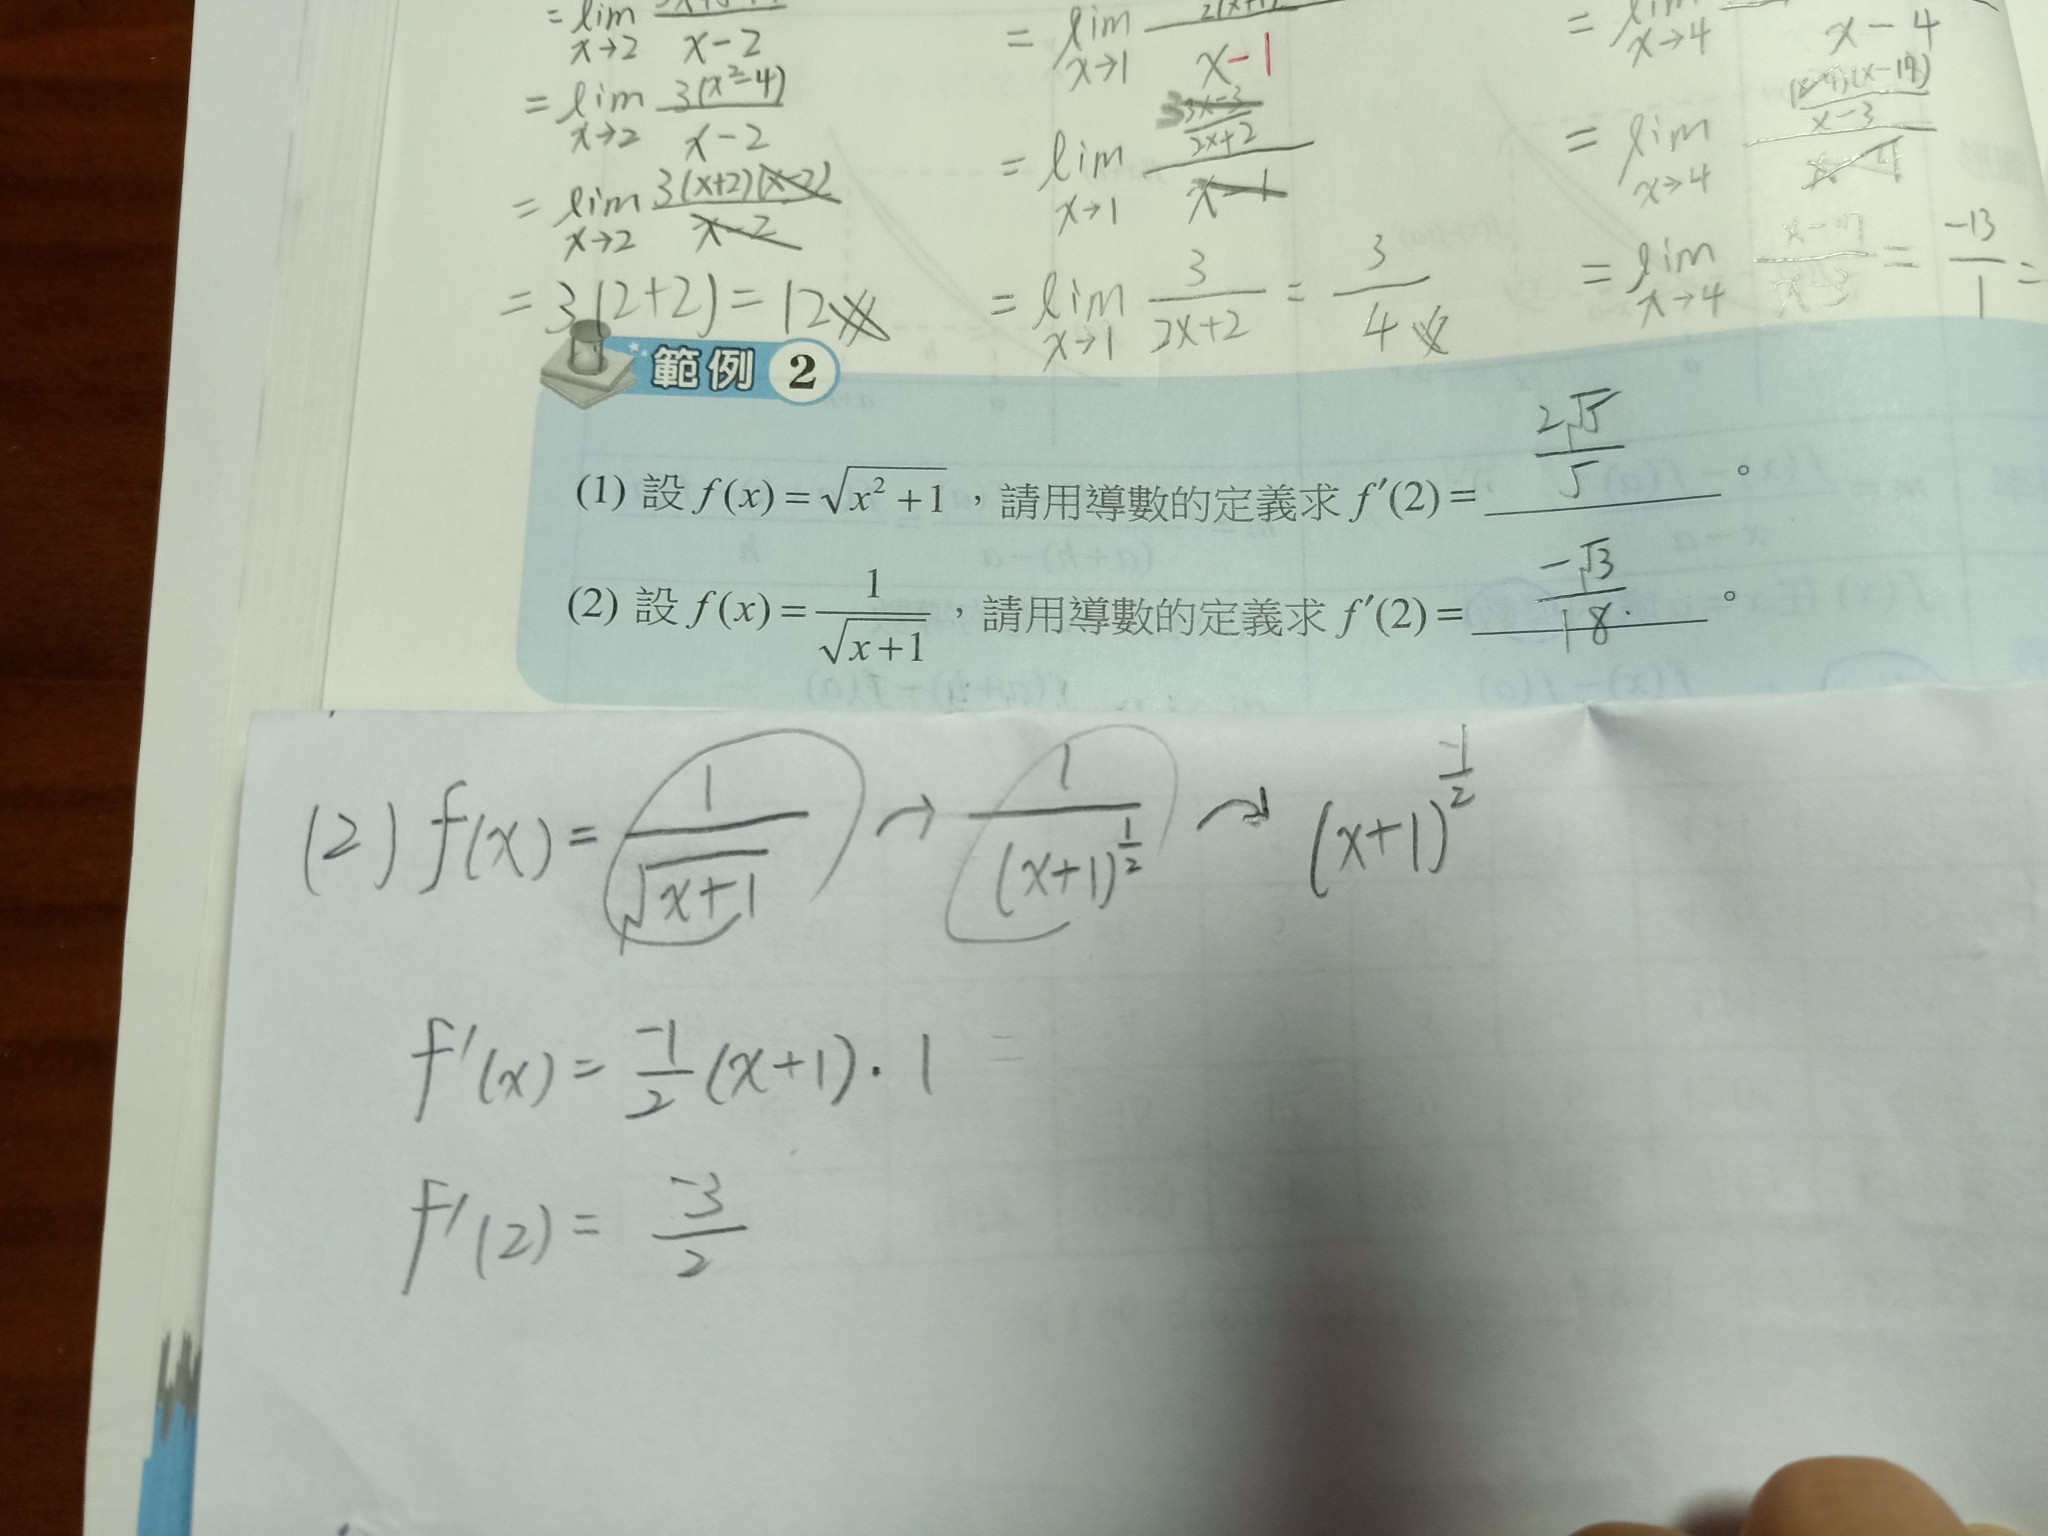 = lim x→2 x-2
= lim x→2 3(x²-4) / x-2
= lim x→2 3(x+2)(x-2) / x-2
= 3(2+2) = 12
= lim x→1 2(x+1) / x-1
= lim x→1 3x-3 / 2x+2 / x-1
= lim x→1 3 / 2x+2 = 3/4
= lim x→4 x-4
= lim x→4 (x-4)(x-17) / x-3 / x-4
= lim x→4 x-17 / x-3 = -13/1 =
範例 2
(1) 設 f(x)=√(x²+1)，請用導數的定義求 f′(2)= 2√5/5 。
(2) 設 f(x)=1/√(x+1)，請用導數的定義求 f′(2)= -√3/18 。
(2) f(x) = 1/√(x+1) → 1/(x+1)^(1/2) → (x+1)^(-1/2)
f′(x) = -1/2 (x+1)·1 =
f′(2) = -3/2